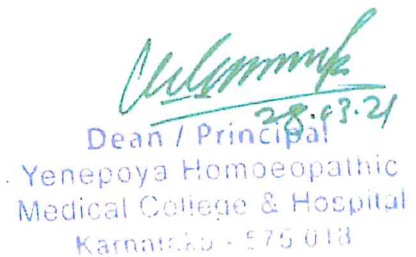 28.03.21
Dean / Principal
Yenepoya Homoeopathic
Medical College & Hospital
Karnataka - 575 018